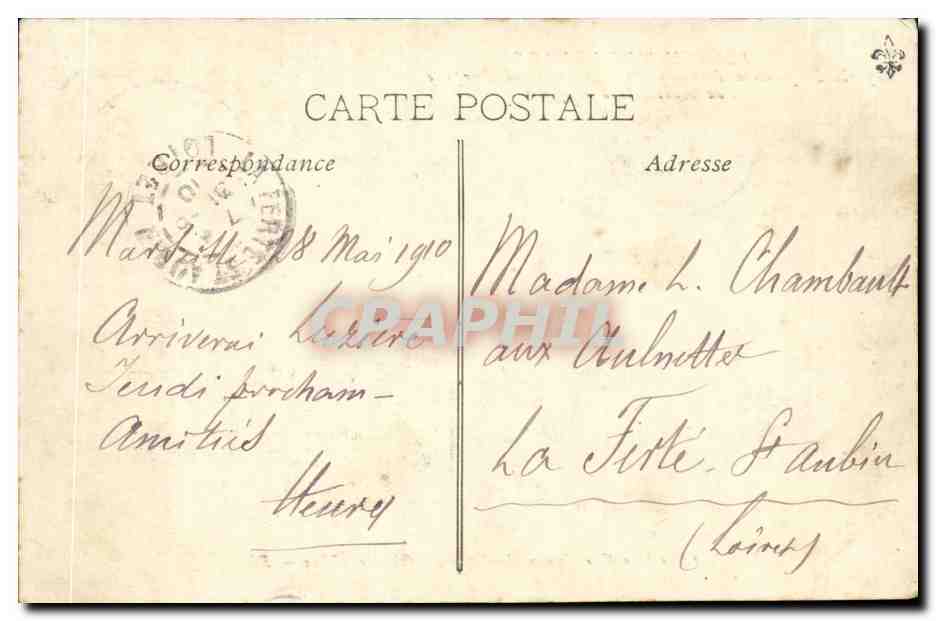 CARTE POSTALE
Correspondance
Marseille 28 Mai 1910
Arriverai
Jeudi prochain -
Amitiés
Henry
Adresse
Madame L. Chambault
aux Aulnettes
La Ferté-St Aubin
(Loiret)
LA FERTE-ST AUBIN
LOIRET
CPAPHIL